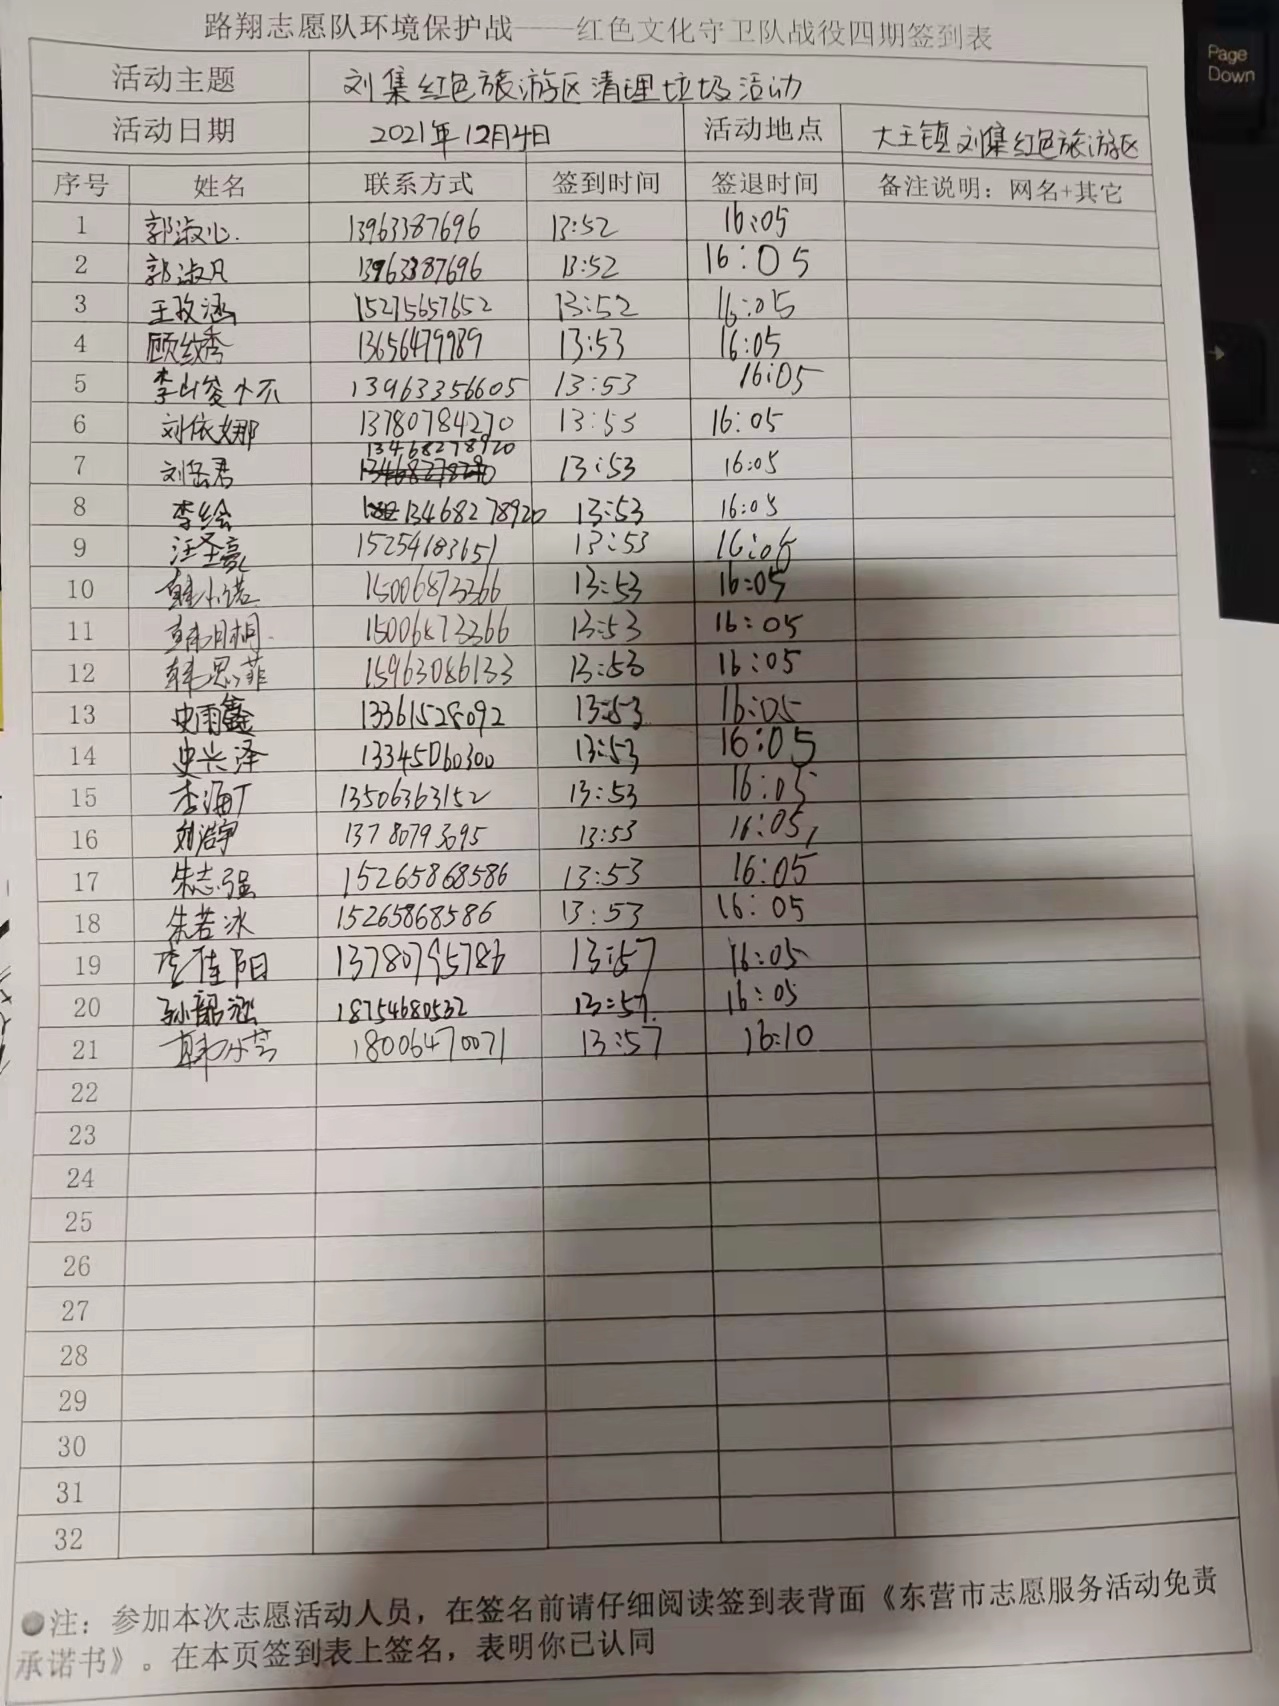 路翔志愿队环境保护战——红色文化守卫队战役四期签到表
活动主题 刘集红色旅游区清理垃圾活动
活动日期 2021年12月4日 活动地点 大王镇刘集红色旅游区
序号 姓名 联系方式 签到时间 签退时间 备注说明：网名+其它
1 郭淑心. 13963387696 13:52 16:05
2 郭淑凡 13963387696 13:52 16:05
3 王政涵 15275657652 13:52 16:05
4 顾纹秀 13656479989 13:53 16:05
5 13963356605 13:53 16:05
6 刘依娜 13780784270 13:53 16:05
7 刘岳君 13468278920 13:53 16:05
8 李绘 13468278920 13:53 16:05
9 汪圣亮 15254683651 13:53 16:05
10 韩小诺 15006873366 13:53 16:05
11 韩月桐 15006873366 13:53 16:05
12 韩思菲 15963086133 13:53 16:05
13 史雨鑫 13361528092 13:53 16:05
14 史兴泽 13345060300 13:53 16:05
15 李海丁 13506363152 13:53 16:05
16 刘浩宇 13780793695 13:53 16:05
17 朱志强 15265868586 13:53 16:05
18 朱若冰 15265868586 13:53 16:05
19 李佳阳 13780795786 13:57 16:05
20 孙韶涵 18754680532 13:57 16:05
21 18006470071 13:57 16:10
22
23
24
25
26
27
28
29
30
31
32
注：参加本次志愿活动人员，在签名前请仔细阅读签到表背面《东营市志愿服务活动免责
承诺书》。在本页签到表上签名，表明你已认同
Page
Down